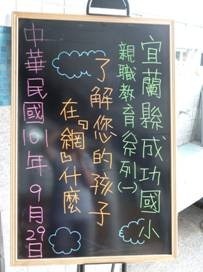 宜蘭縣成功國小
親職教育系列(一)
了解您的孩子
在『網』什麼
中華民國101年9月29日